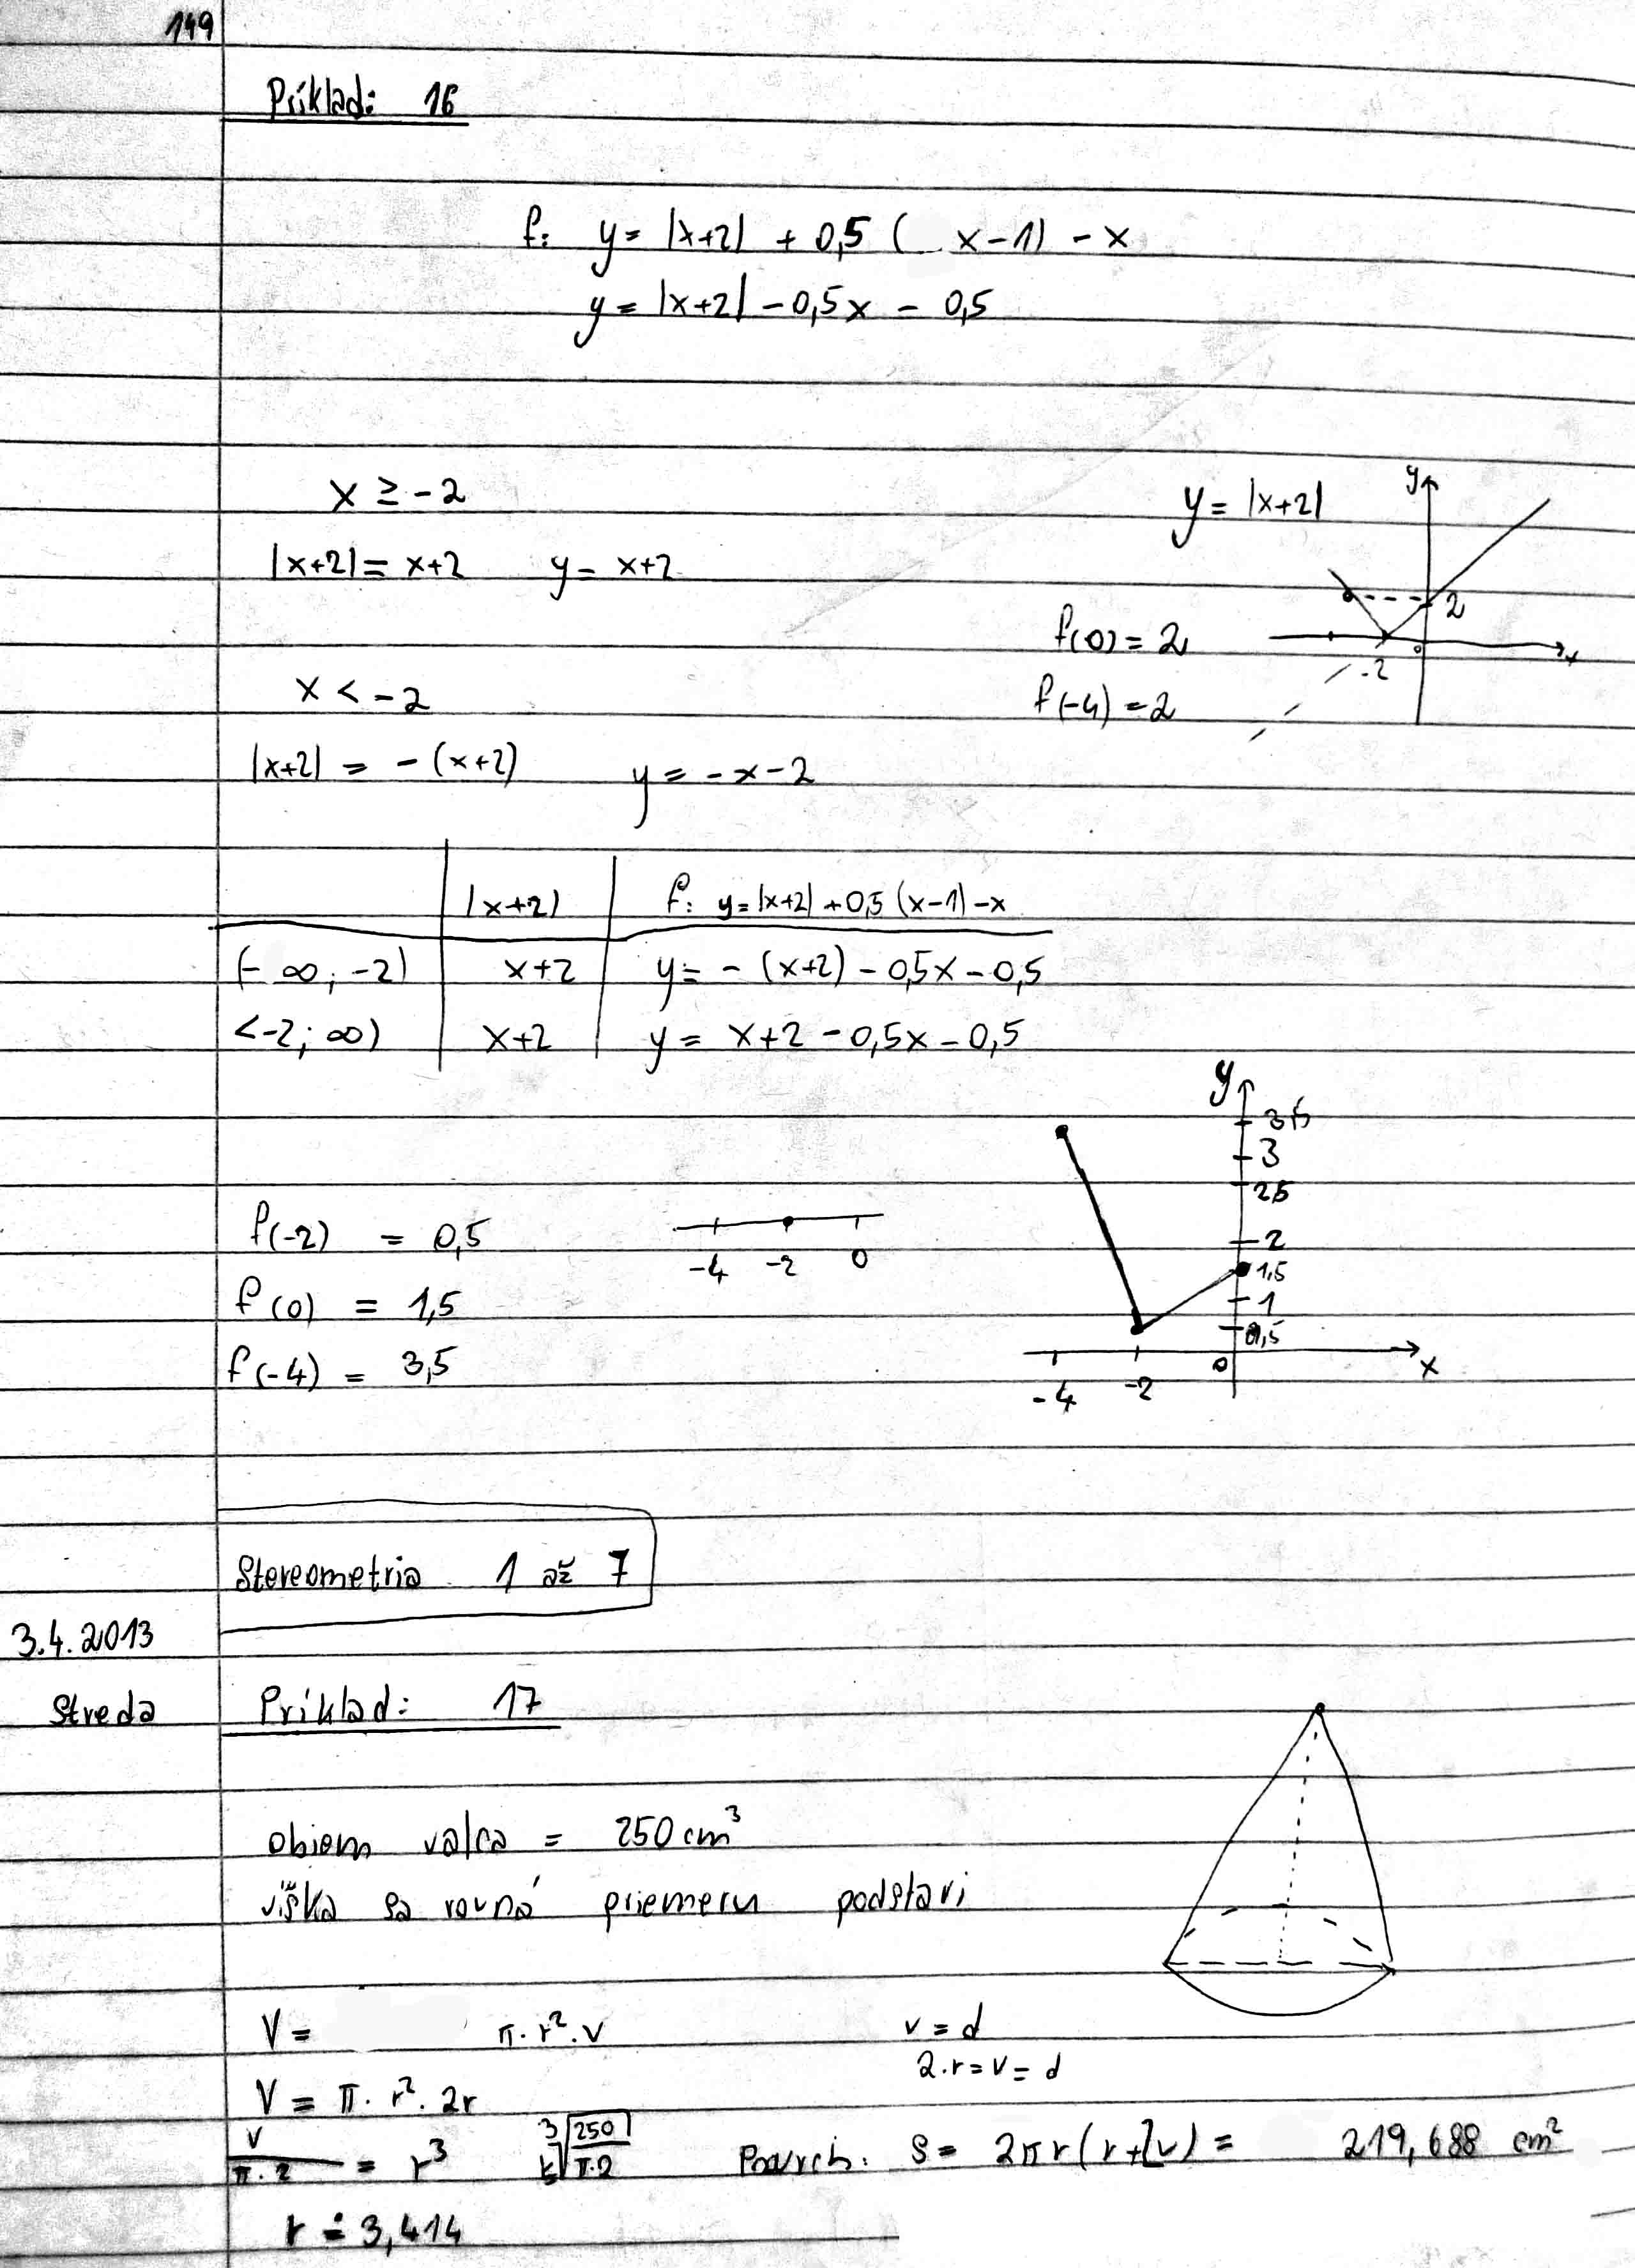 149
Príklad: 16
f: y = |x+2| + 0,5 ( x-1) - x
y = |x+2| - 0,5x - 0,5
x ≥ -2
|x+2| = x+2 y = x+2
y = |x+2|
y
2
-2
0
x
f(0) = 2
f(-4) = 2
x < -2
|x+2| = - (x+2) y = -x-2
|x+2| f: y = |x+2| + 0,5 (x-1) - x
(- ∞; -2) x+2 y = - (x+2) - 0,5x - 0,5
<-2; ∞) x+2 y = x+2 - 0,5x - 0,5
f(-2) = 0,5
f(0) = 1,5
f(-4) = 3,5
-4 -2 0
y
3,5
3
2,5
2
1,5
1
0,5
-4 -2 0 x
Stereometria 1 až 7
3.4.2013
Streda
Príklad: 17
objem valca = 250 cm³
víška sa rovná priemeru podstavi
V = π · r² · v v = d
2·r = v = d
V = π · r² · 2r
V/π·2 = r³ ³√250/π·2 Povrch: S = 2πr (r+v) = 219,688 cm²
r ≐ 3,414